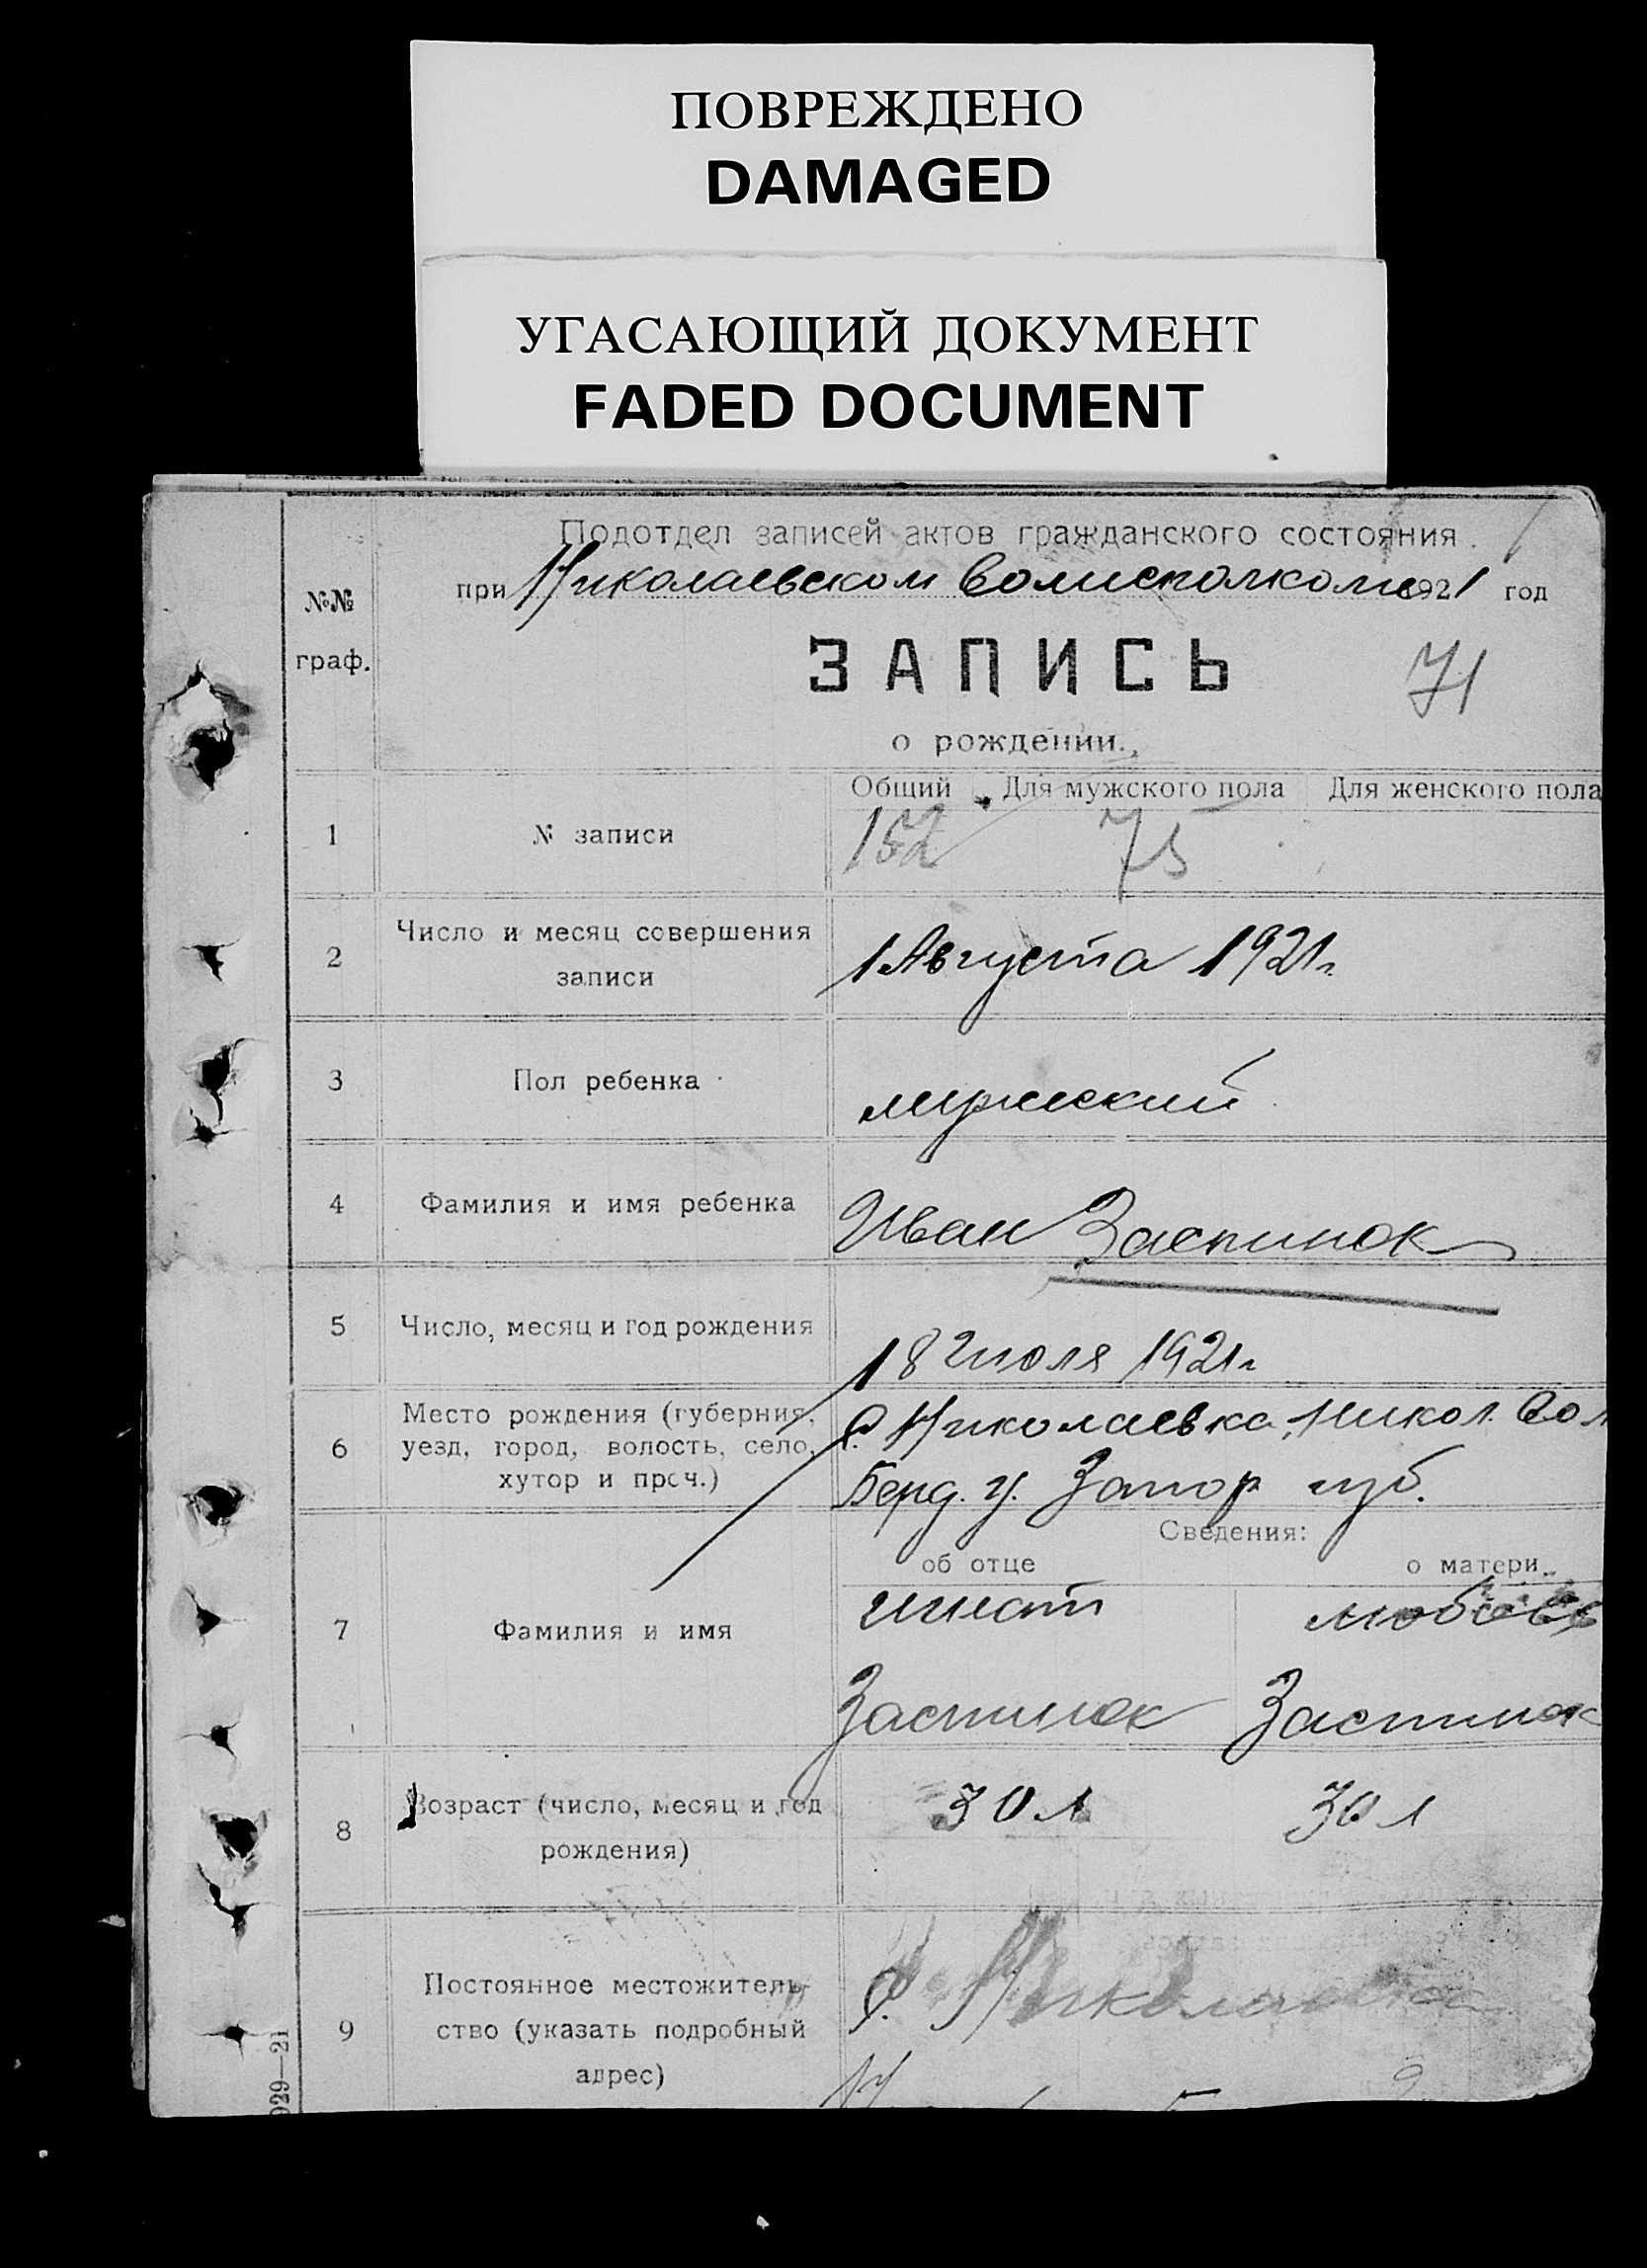 ПОВРЕЖДЕНО
DAMAGED
УГАСАЮЩИЙ ДОКУМЕНТ
FADED DOCUMENT
Подотдел записей актов гражданского состояния
при Николаевском Волисполкоме 1921 год
№№
граф.
ЗАПИСЬ
71
о рождении.
Общий Для мужского пола Для женского пола
1 № записи 152 75
2 Число и месяц совершения
записи
1 Августа 1921 г.
3 Пол ребенка мужеский
4 Фамилия и имя ребенка Иван Заспинок
5 Число, месяц и год рождения 18 Июля 1921 г
6 Место рождения (губерния,
уезд, город, волость, село,
хутор и проч.)
с. Николаевка, Никол. Вол
Берд. у. Запор губ.
Сведения:
об отце о матери
7 Фамилия и имя
Игнат Любовь
Заспинок Заспинок
8 Возраст (число, месяц и год
рождения)
30 л 30 л
9 Постоянное местожитель-
ство (указать подробный
адрес)
с. Николаевка
929—21